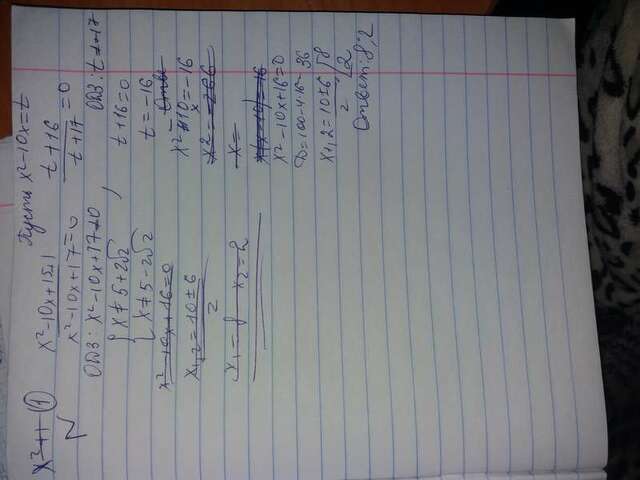 Пусть x²-10x=t
x²+1 (1)
N
x²-10x+15+1
x²-10x+17=0
ОДЗ: x²-10x+17≠0
x≠5+2√2
x≠5-2√2
x²-10x+16=0
x1,2=10±6
2
x1=8 x2=2
t+16
t+17
=0
ОДЗ: t≠-17
t+16=0
t=-16
Отве
x²-10x=-16
x²-
x=
x(x-10)=-16
x²-10x+16=0
D=100-4·16=36
x1,2=10±6
2
8
2
Ответ: 8; 2